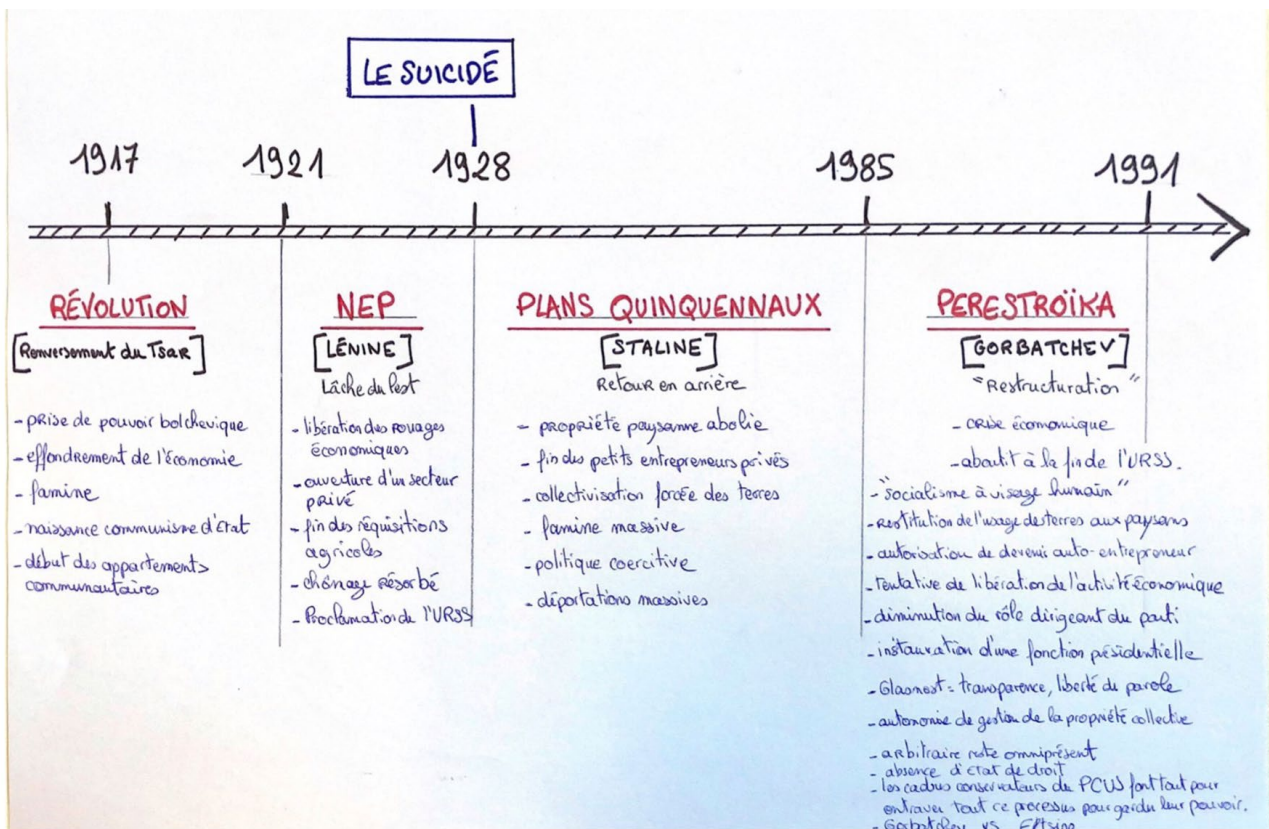 LE SUICIDÉ
1917
1921
1928
1985
1991
RÉVOLUTION
[Renversement du Tsar]
- prise de pouvoir bolchevique
- effondrement de l'économie
- famine
- naissance communisme d'état
- début des appartements
communautaires
NEP
[LÉNINE]
Lâche du lest
- libération des rouages
économiques
- ouverture d'un secteur
privé
- fin des réquisitions
agricoles
- chômage résorbé
- Proclamation de l'URSS
PLANS QUINQUENNAUX
[STALINE]
Retour en arrière
- propriété paysanne abolie
- fin des petits entrepreneurs privés
- collectivisation forcée des terres
- famine massive
- politique coercitive
- déportations massives
PERESTROÏKA
[GORBATCHEV]
"Restructuration"
- crise économique
- aboutit à la fin de l'URSS.
- "socialisme à visage humain"
- restitution de l'usage des terres aux paysans
- autorisation de devenir auto-entrepreneur
- tentative de libération de l'activité économique
- diminution du rôle dirigeant du parti
- instauration d'une fonction présidentielle
- Glasnost = transparence, liberté de parole
- autonomie de gestion de la propriété collective
- arbitraire reste omniprésent
- absence d'état de droit
- les cadres conservateurs du PCUS font tout pour
entraver tout ce processus pour garder leur pouvoir.
- Gorbatchev vs Eltsine